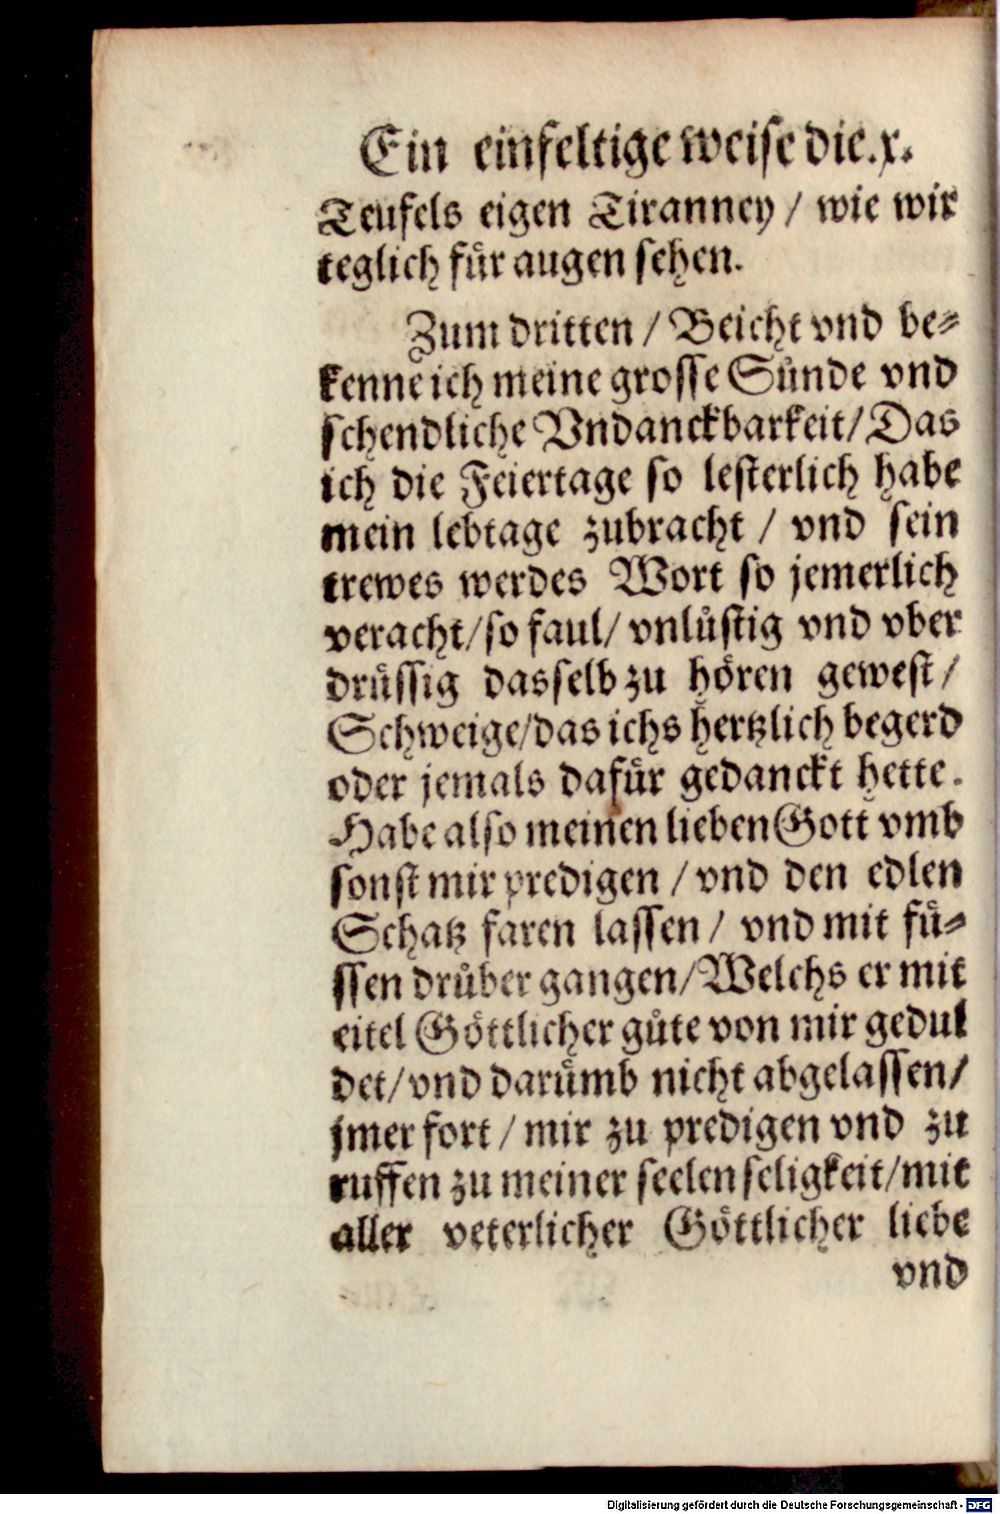 Ein einfeltige weise die .x.
Teufels eigen Tiranney / wie wir
teglich für augen sehen.
Zum dritten / Beicht vnd be⸗
kenne ich meine grosse Sünde vnd
schendliche Vndanckbarkeit / Das
ich die Feiertage so lesterlich habe
mein lebtage zubracht / vnd sein
trewes werdes Wort so jemerlich
veracht / so faul / vnlüstig vnd vber
drüssig dasselb zu hören gewest /
Schweige / das ichs hertzlich begerd
oder jemals dafür gedanckt hette.
Habe also meinen lieben Gott vmb
sonst mir predigen / vnd den edlen
Schatz faren lassen / vnd mit fü⸗
ssen drüber gangen / Welchs er mit
eitel Göttlicher güte von mir gedul
det / vnd darümb nicht abgelassen /
jmer fort / mir zu predigen vnd zu
ruffen zu meiner seelen seligkeit / mit
aller veterlicher Göttlicher liebe
vnd
Digitalisierung gefördert durch die Deutsche Forschungsgemeinschaft - DFG